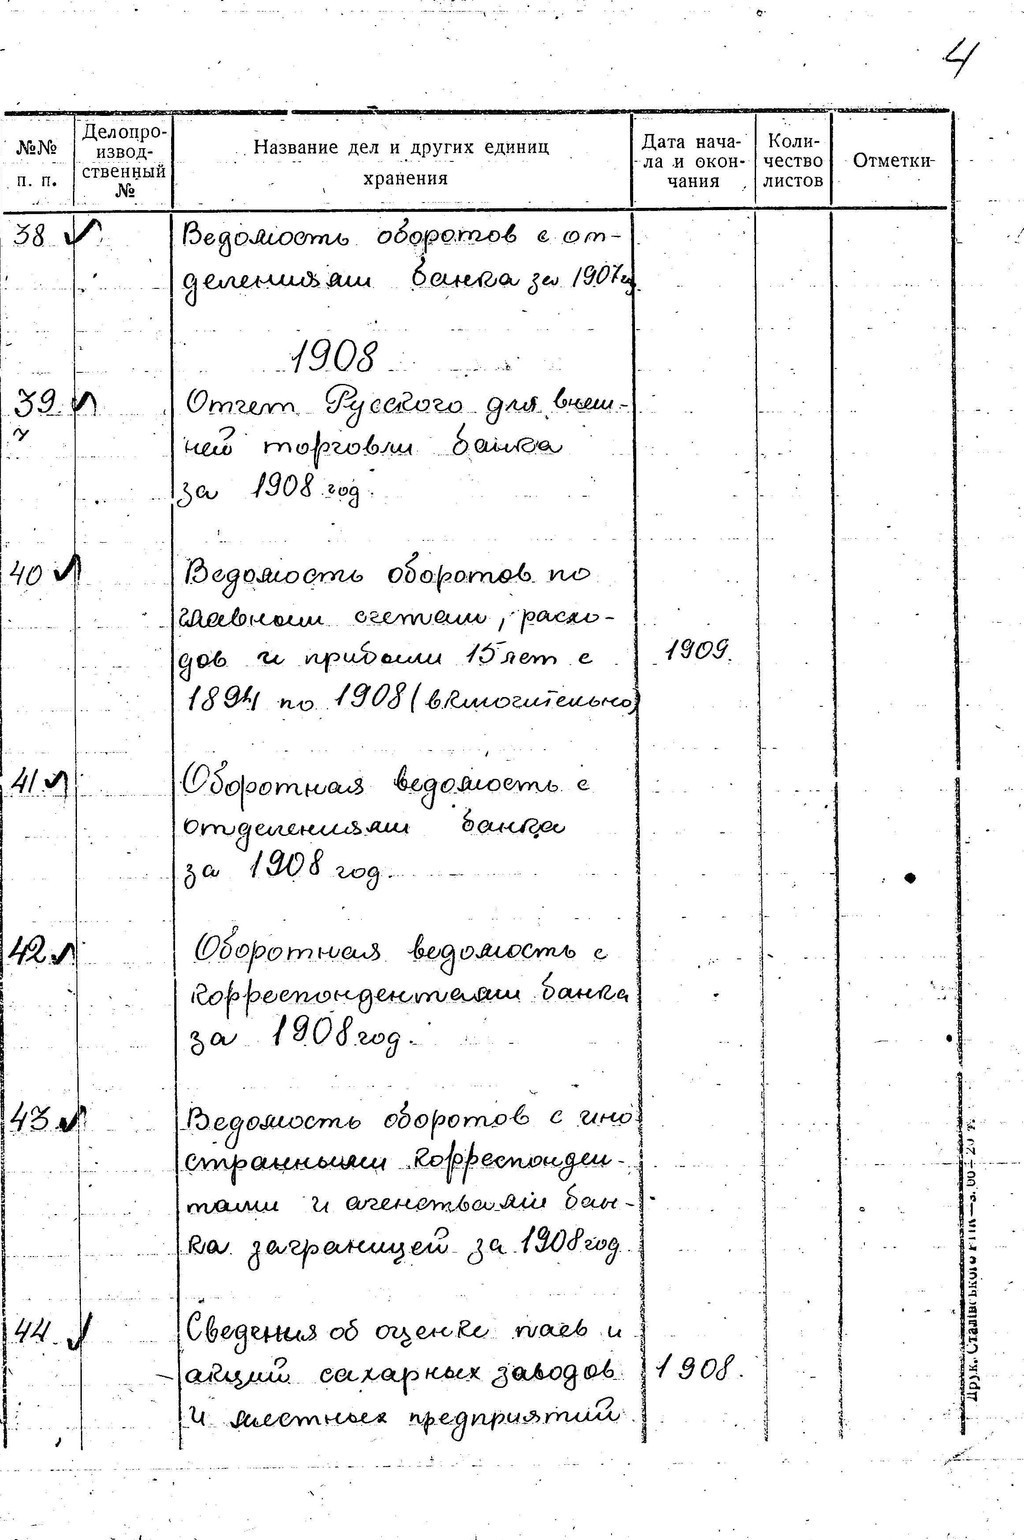 4
№№ п. п.
Делопро-
извод-
ственный
№
Название дел и других единиц
хранения
Дата нача-
ла и окон-
чания
Коли-
чество
листов
Отметки
38 Ведомость оборотов с от-
делениями банка за 1907
1908
39 Отчет Русского для внеш-
ней торговли банка
за 1908 год.
40 Ведомость оборотов по
главным счетам, расхо-
дов и прибыли 15 лет с 1909.
1894 по 1908 (включительно)
41 Оборотная ведомость с
отделениями банка
за 1908 год.
42 Оборотная ведомость с
корреспондентами банка
за 1908 год.
43 Ведомость оборотов с ино
странными корреспонден-
тами и агенствами бан-
ка заграницей за 1908 год
44 Сведения об оценке паев и
акций сахарных заводов 1908.
и местных предприятий
Друк. Сталінського